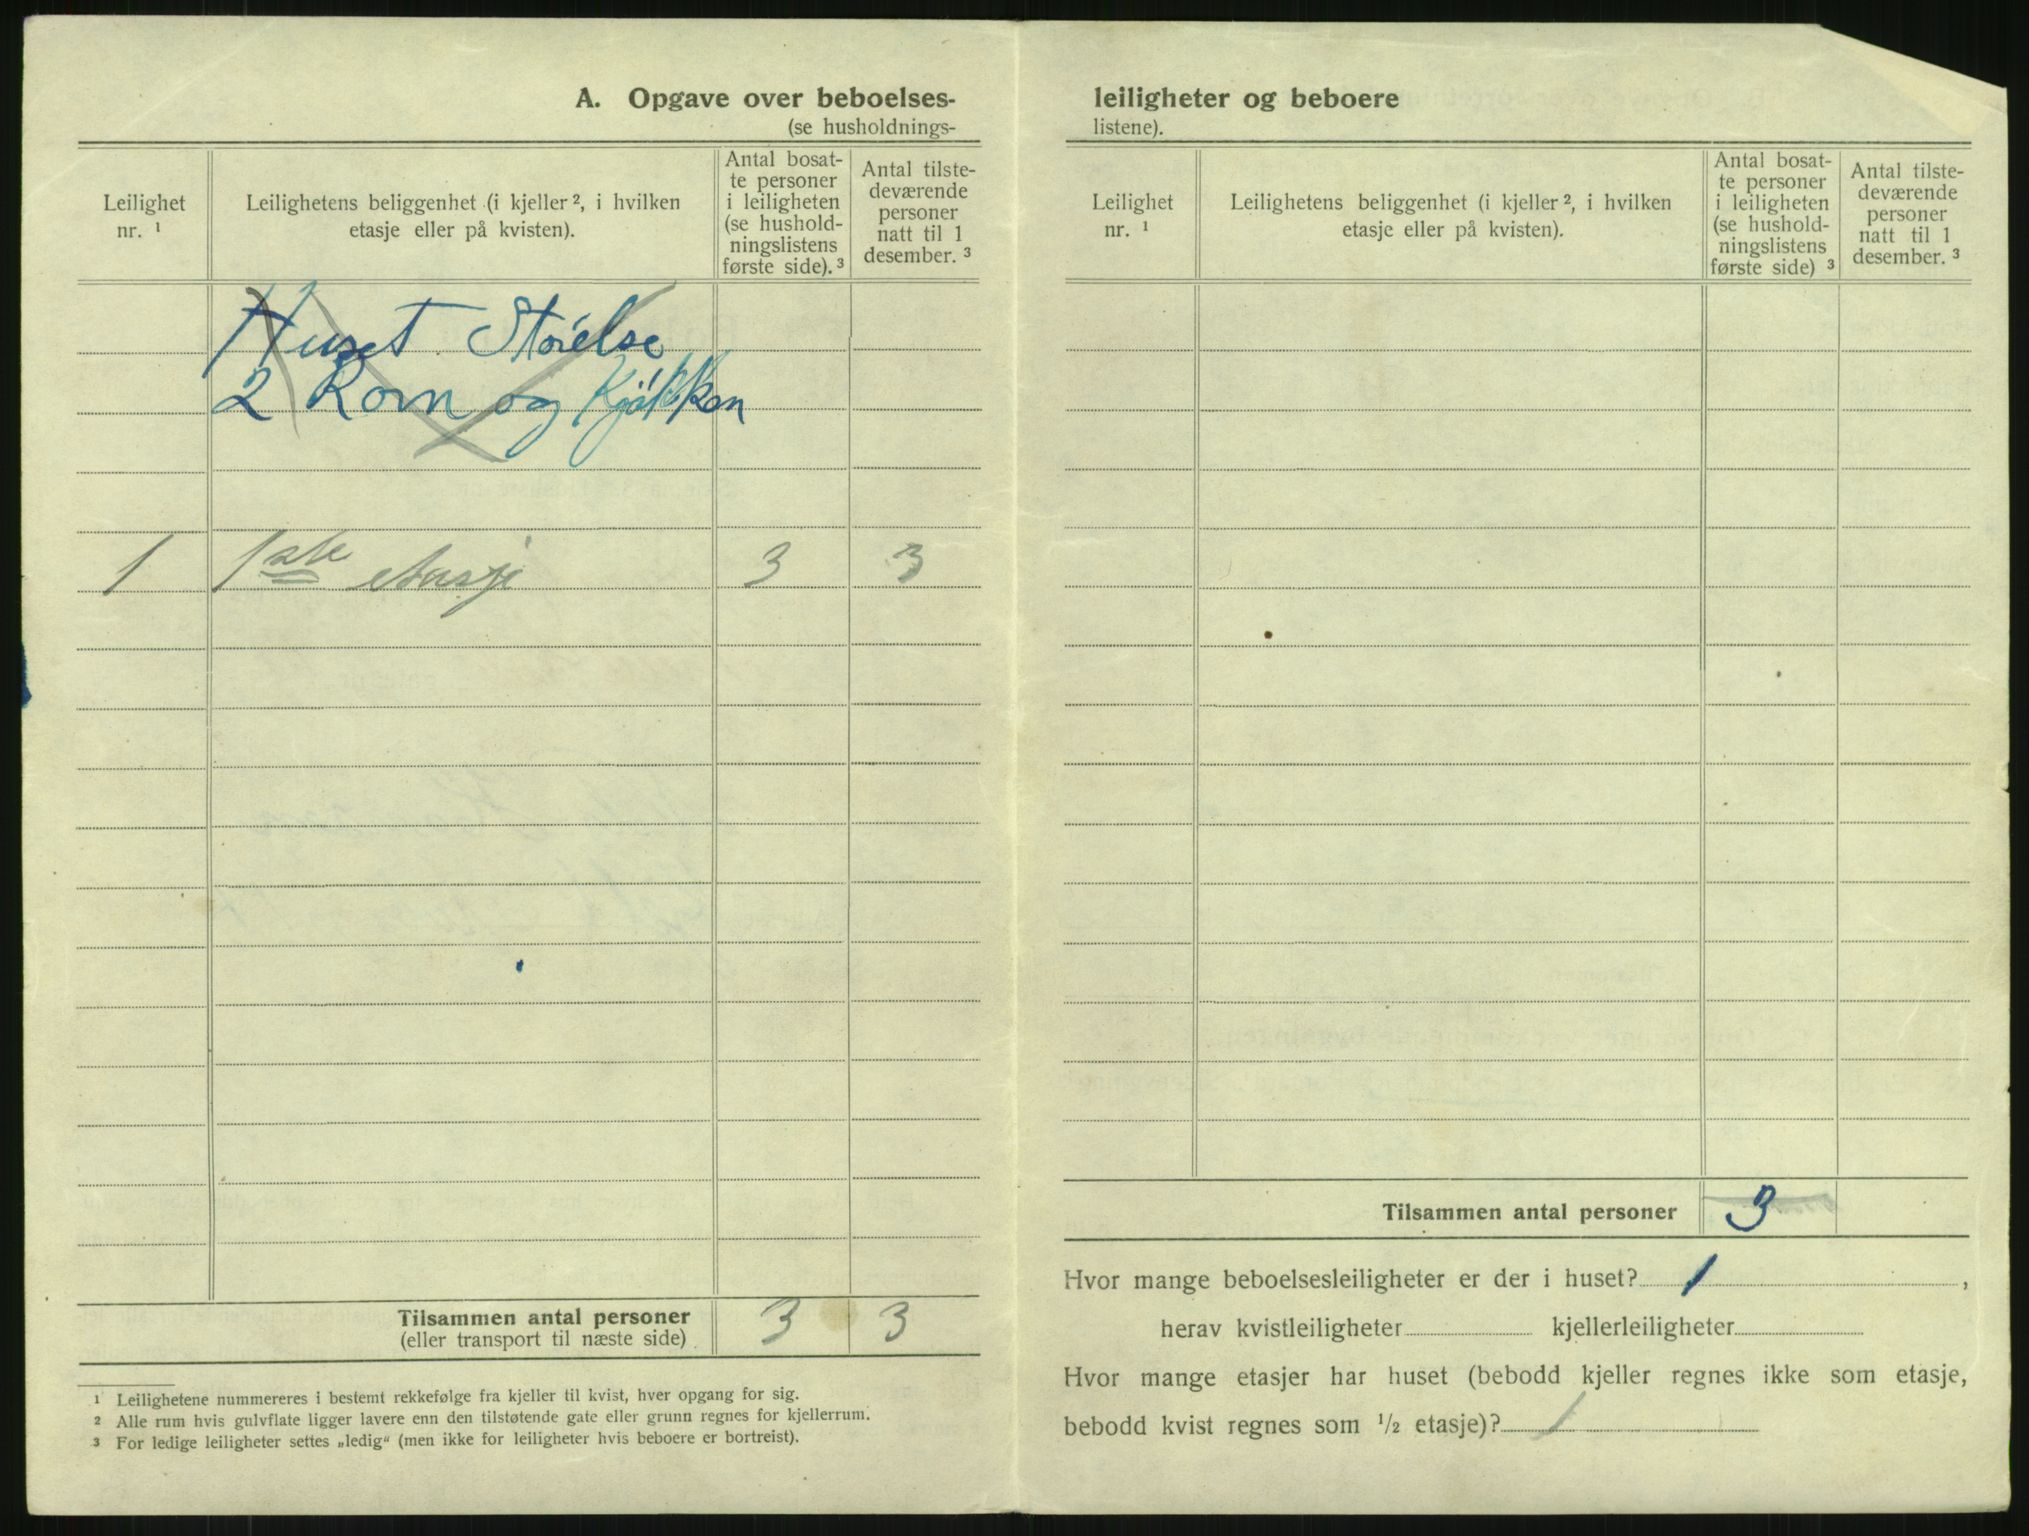 A. Opgave over beboelses-
(se husholdnings-
Leilighet nr. ¹
Leilighetens beliggenhet (i kjeller ², i hvilken etasje eller på kvisten).
Antal bosat-
te personer
i leiligheten
(se hushold-
ningslistens
første side). ³
Antal tilste-
deværende
personer
natt til 1
desember. ³
Huset Störelse
2 Rom og Kjökken
1 1ste etasje 3 3
Tilsammen antal personer 3 3
(eller transport til næste side)
¹ Leilighetene nummereres i bestemt rekkefølge fra kjeller til kvist, hver opgang for sig.
² Alle rum hvis gulvflate ligger lavere enn den tilstøtende gate eller grunn regnes for kjellerrum.
³ For ledige leiligheter settes „ledig“ (men ikke for leiligheter hvis beboere er bortreist).
leiligheter og beboere
listene).
Leilighet nr. ¹
Leilighetens beliggenhet (i kjeller ², i hvilken etasje eller på kvisten).
Antal bosat-
te personer
i leiligheten
(se hushold-
ningslistens
første side) ³
Antal tilste-
deværende
personer
natt til 1
desember. ³
Tilsammen antal personer 3
Hvor mange beboelsesleiligheter er der i huset? 1 ,
herav kvistleiligheter kjellerleiligheter
Hvor mange etasjer har huset (bebodd kjeller regnes ikke som etasje,
bebodd kvist regnes som ½ etasje)? 1